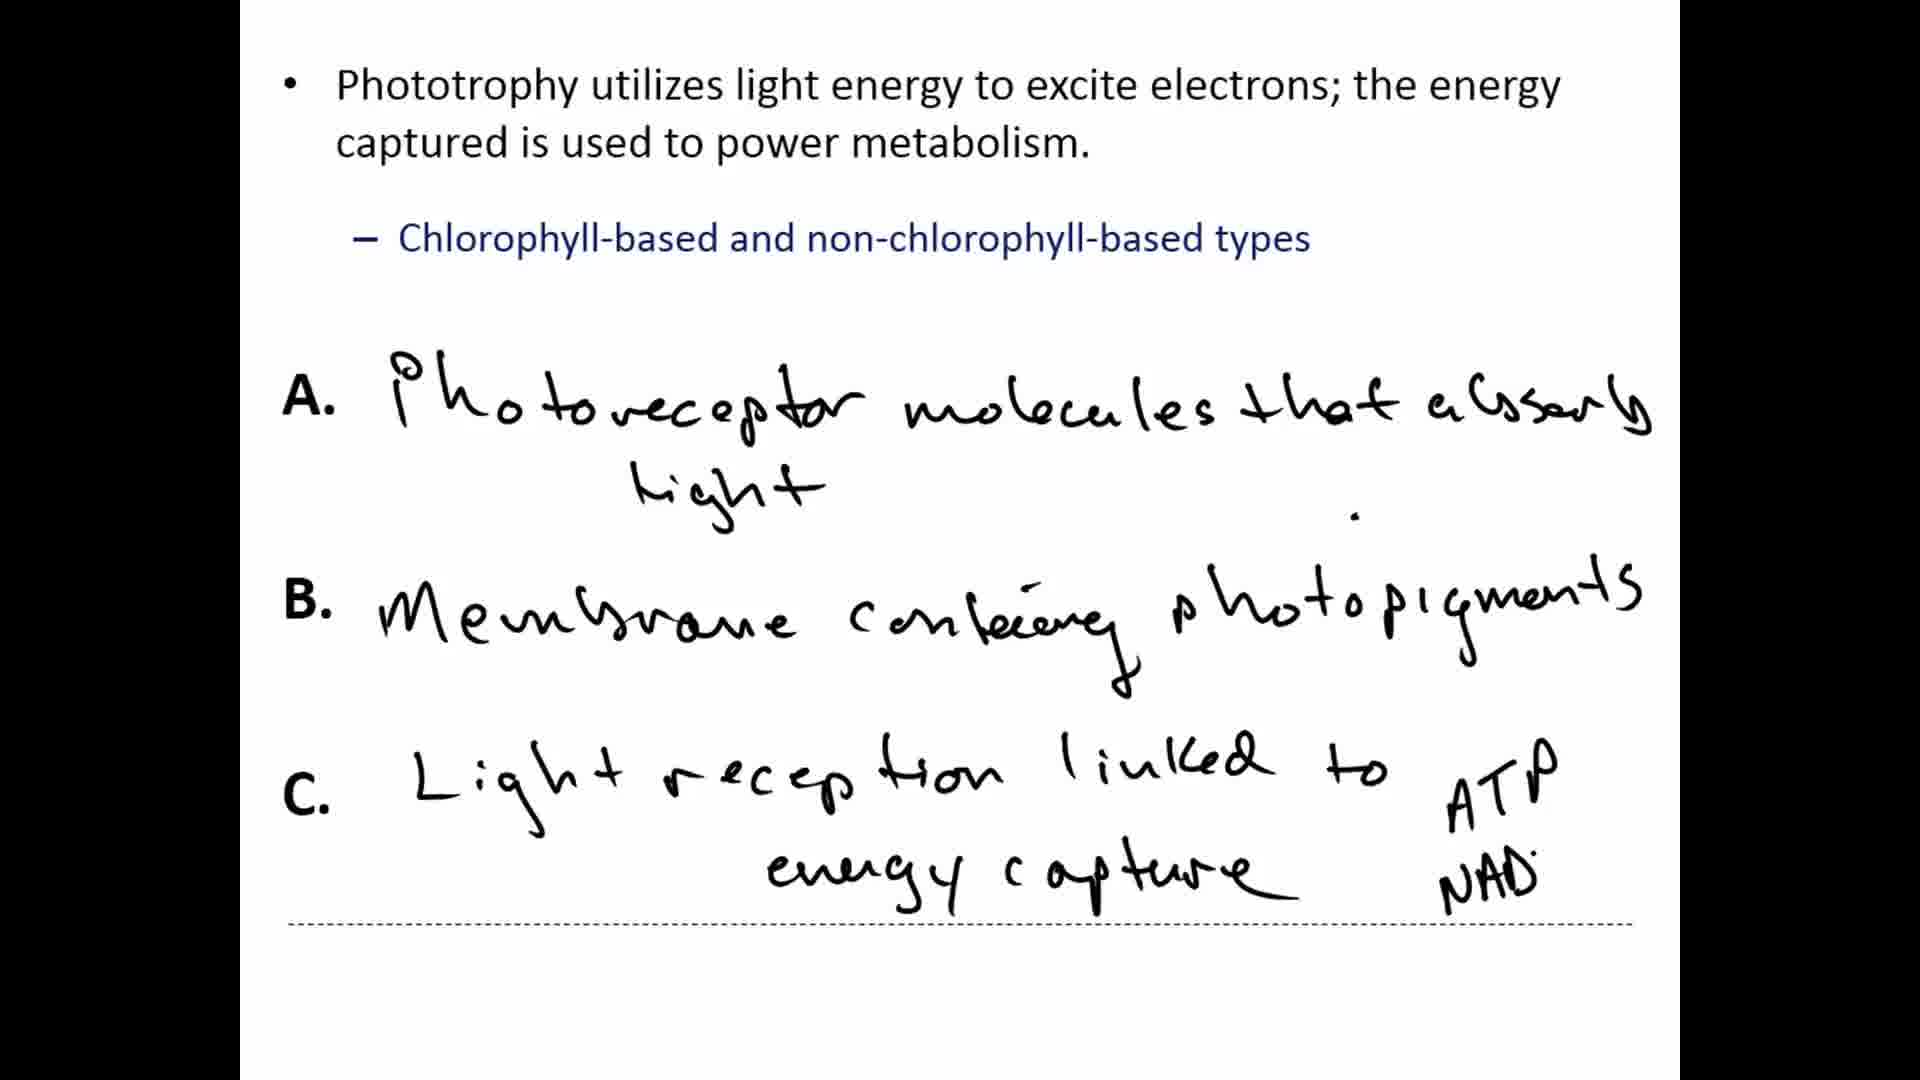 • Phototrophy utilizes light energy to excite electrons; the energy
captured is used to power metabolism.
– Chlorophyll-based and non-chlorophyll-based types
A. Photoreceptor molecules that absorb
light
B. Membrane containing photopigments
C. Light reception linked to ATP
energy capture NAD